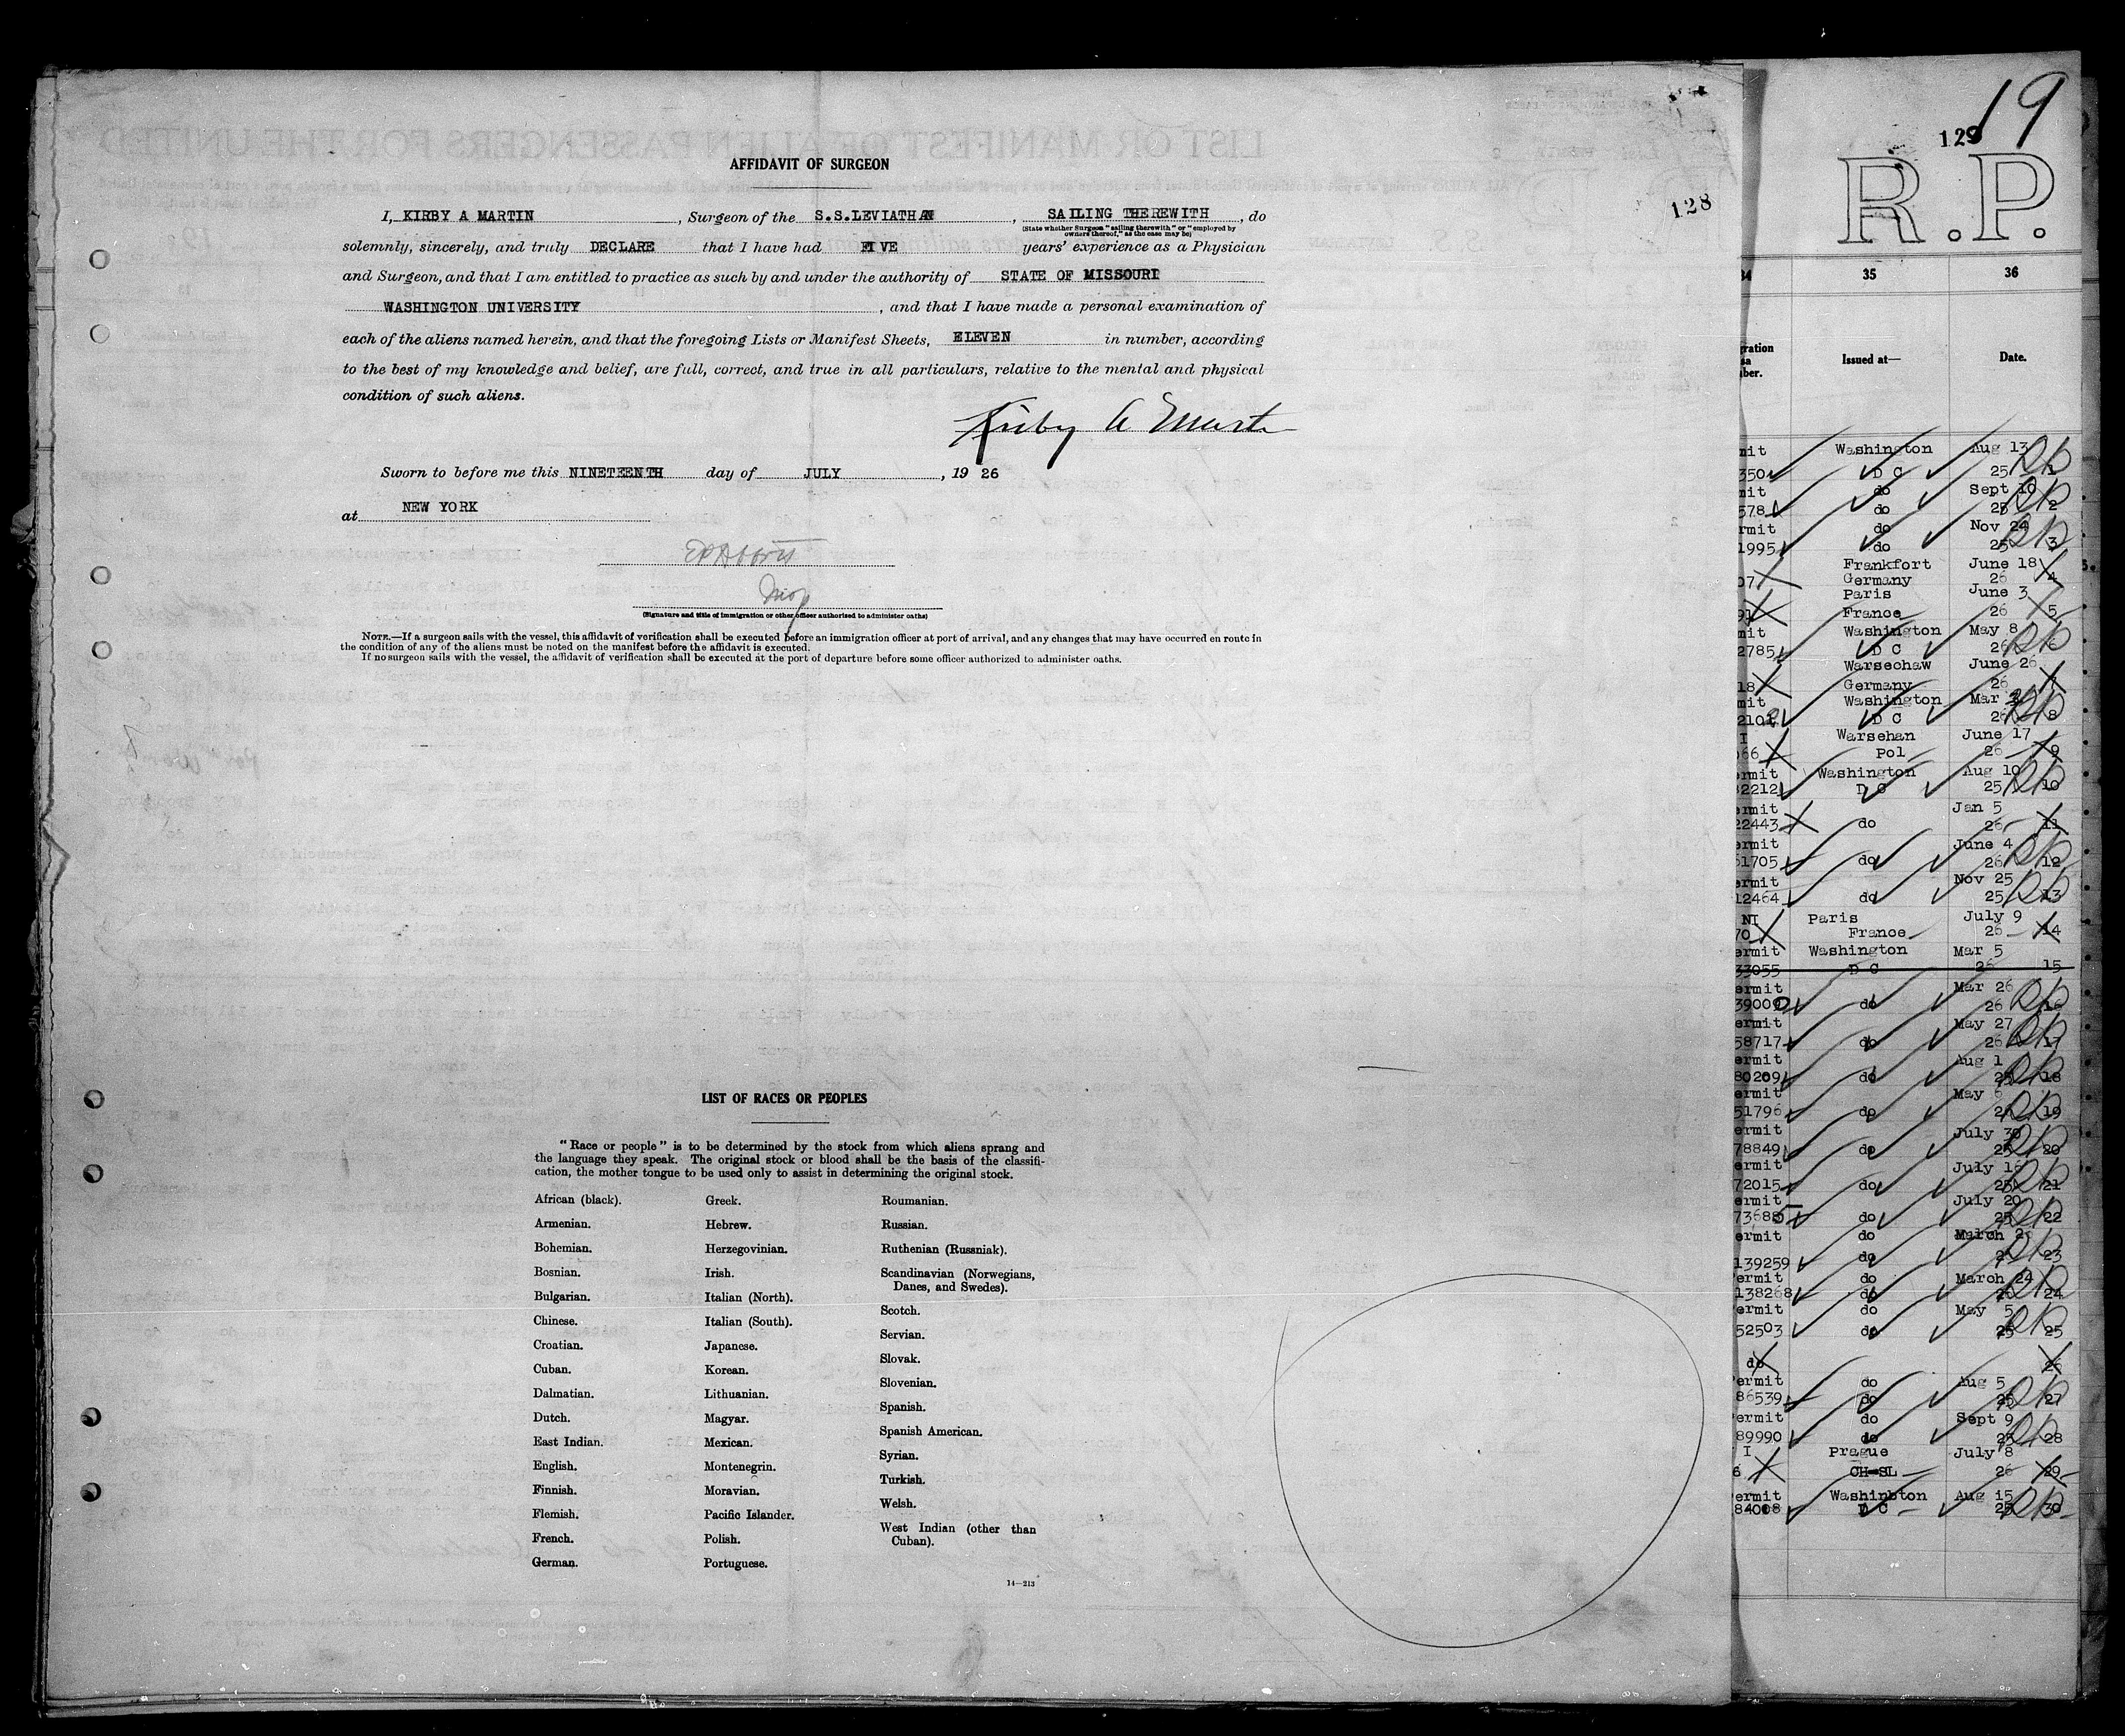 19
129
R.P.
128
AFFIDAVIT OF SURGEON
I, KIRBY A MARTIN, Surgeon of the S.S.LEVIATHAN, SAILING THEREWITH, do
(State whether Surgeon "sailing therewith" or "employed by
owners thereof," as the case may be)
solemnly, sincerely, and truly DECLARE that I have had FIVE years' experience as a Physician
and Surgeon, and that I am entitled to practice as such by and under the authority of STATE OF MISSOURI
WASHINGTON UNIVERSITY, and that I have made a personal examination of
each of the aliens named herein, and that the foregoing Lists or Manifest Sheets, ELEVEN in number, according
to the best of my knowledge and belief, are full, correct, and true in all particulars, relative to the mental and physical
condition of such aliens.
Kirby A Martin
Sworn to before me this NINETEENTH day of JULY, 19 26
at NEW YORK
(Signature and title of immigration or other officer authorized to administer oaths)
NOTE.—If a surgeon sails with the vessel, this affidavit of verification shall be executed before an immigration officer at port of arrival, and any changes that may have occurred en route in
the condition of any of the aliens must be noted on the manifest before the affidavit is executed.
If no surgeon sails with the vessel, the affidavit of verification shall be executed at the port of departure before some officer authorized to administer oaths.
LIST OF RACES OR PEOPLES
"Race or people" is to be determined by the stock from which aliens sprang and
the language they speak. The original stock or blood shall be the basis of the classifi-
cation, the mother tongue to be used only to assist in determining the original stock.
African (black).
Armenian.
Bohemian.
Bosnian.
Bulgarian.
Chinese.
Croatian.
Cuban.
Dalmatian.
Dutch.
East Indian.
English.
Finnish.
Flemish.
French.
German.
Greek.
Hebrew.
Herzegovinian.
Irish.
Italian (North).
Italian (South).
Japanese.
Korean.
Lithuanian.
Magyar.
Mexican.
Montenegrin.
Moravian.
Pacific Islander.
Polish.
Portuguese.
Roumanian.
Russian.
Ruthenian (Russniak).
Scandinavian (Norwegians,
Danes, and Swedes).
Scotch.
Servian.
Slovak.
Slovenian.
Spanish.
Spanish American.
Syrian.
Turkish.
Welsh.
West Indian (other than
Cuban).
14—213
34 35 36
Issued at— Date.
Washington Aug 13
D C 25 1
do Sept 10
do 25 2
do Nov 24
1995 do 25 3
Frankfort June 18
Germany 26 4
Paris June 3
France 26 5
Washington May 8
2785 D C 26 6
Warsechaw June 26
Germany 26 7
Washington Mar
D C 26 8
Warsehan June 17
Pol 26 9
Washington Aug 10
D C 25 10
Jan 5
22443 do 26 11
June 4
61705 do 26 12
Nov 25
12464 do 25 13
NI Paris July 9
70 France 26 14
Washington Mar 5
33055 D C 26 15
Mar 26
39009 do 26 16
May 27
58717 do 26 17
Aug 1
80209 do 25 18
May 6
51796 do 26 19
July 30
78849 do 25 20
July 16
72015 do 25 21
July 20
73685 do 25 22
do March
139259 do 23
do March 24
138268 do 24
do May 5
52503 do 25 25
do 26
do Aug 5
86539 do 25 27
do Sept 9
89990 do 25 28
I Prague July 8
6 CH-SL 26 29
Washinbton Aug 15
84008 D C 25 30